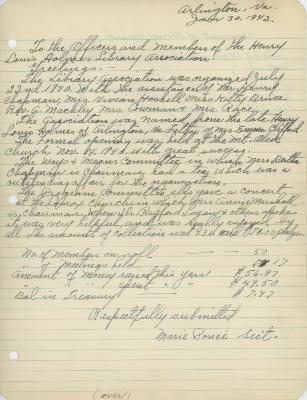 Arlington, Va.
Jan. 30, 1942.
To the Officers and Members of the Henry
Louis Holmes Library Association.
Greetings.
The Library Association was organized July
22nd 1940. With the assistance of Mr. Henry
Chapman, Mrs. Vivian Haskell Miss Kitty Bruce
Rev. A. Mackley Mrs. Bowman & Mrs. Race.
The Association was named from the late Henry
Louis Holmes of Arlington, the father of Mrs. Emma Clifford.
The Formal opening was held at the Mt. Olive
Church Nov. 4, 1940. with great success.
The Ways & Means Committee in which Mrs.
Chapman is Chairman had a tea which was a
outstanding affair for the Association.
The Program Committee also gave a concert
at the Lomax Church in which Mrs. Annie Marshall
is Chairman, when Dr. Rayford Logan & others spoke
it was very helpful, and was really enjoyed by
all. The amount of collections was
No. of Members on roll — 50
" of Meetings held — 17
Amount of Money raised this year $56.97
" " " spent " " $49.50
Bal in Treasury — $7.47
Respectfully submitted
Marie Ponce Sect.
(over)